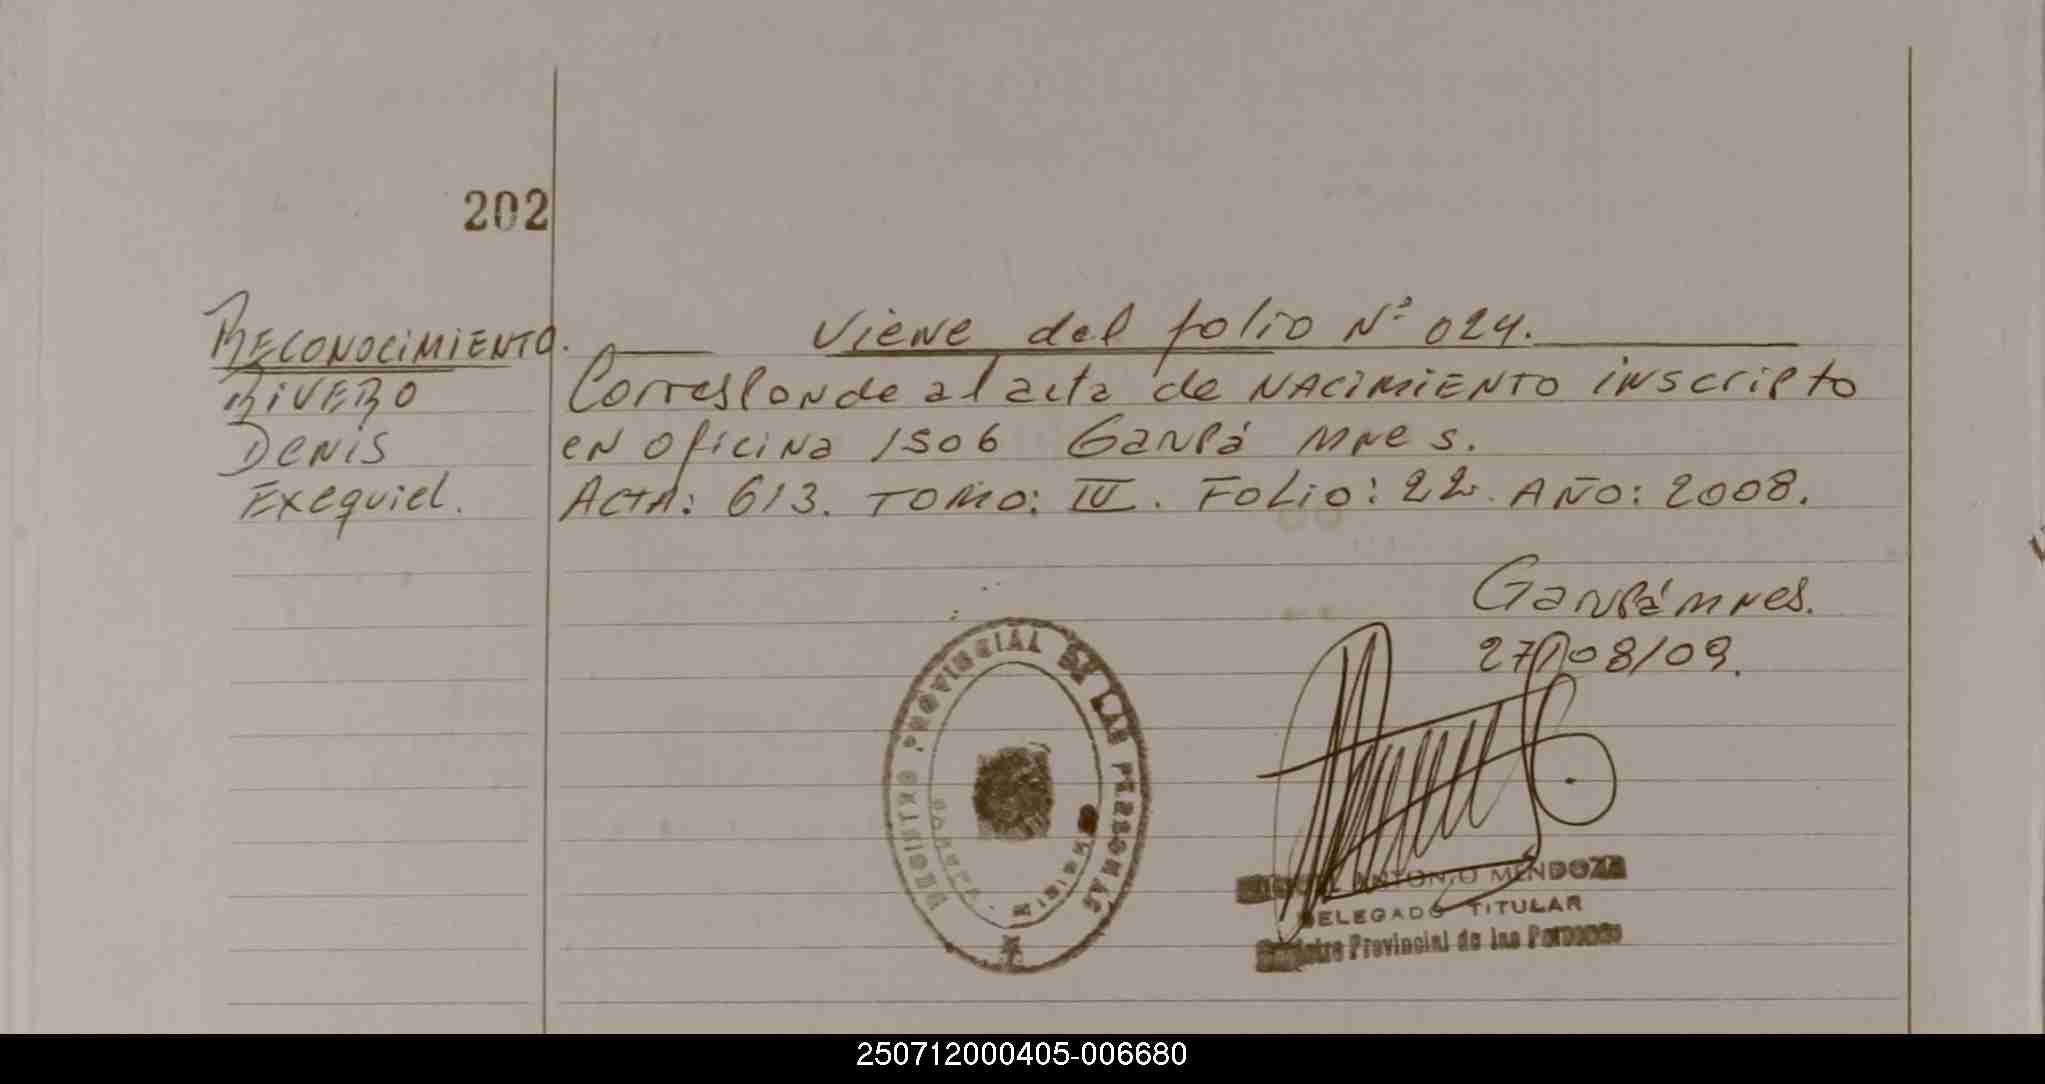 202
RECONOCIMIENTO.
RIVERO
Denis
Exequiel.
Viene del folio Nº 024.
Corresponde al acta de NACIMIENTO inscripto
en oficina 1506 Garupá Mnes.
ACTA: 613. TOMO: IV. FOLIO: 22. AÑO: 2008.
Garupá Mnes.
27/08/09.
REGISTRO PROVINCIAL DE LAS PERSONAS
ANTONIO MENDOZA
DELEGADO TITULAR
Registro Provincial de las Personas
250712000405-006680